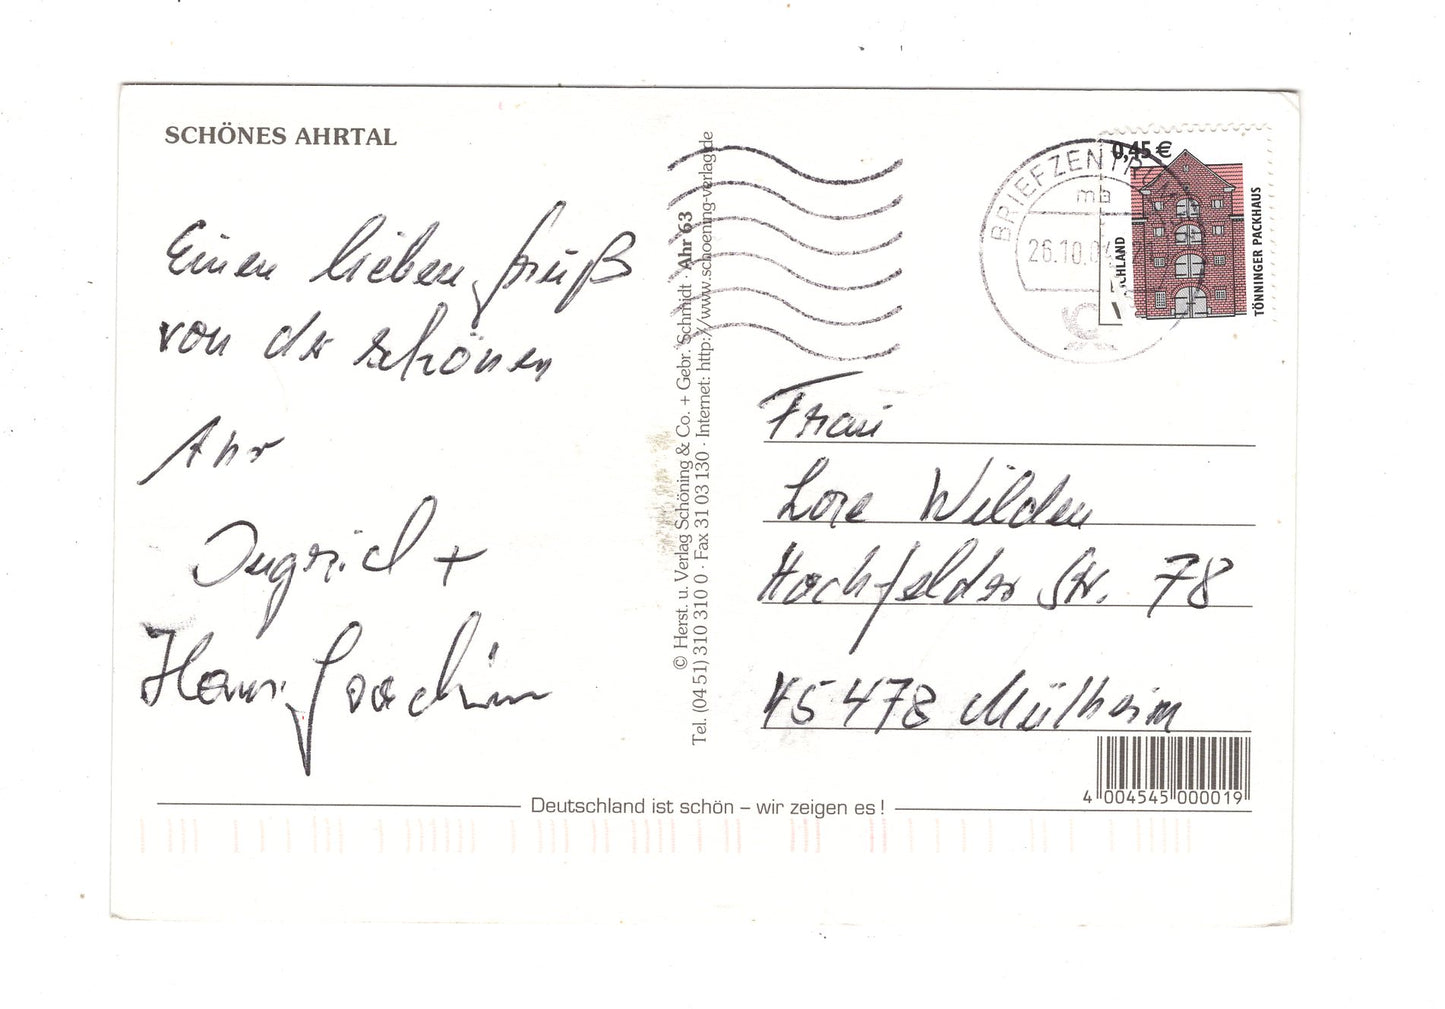 SCHÖNES AHRTAL
Einen lieben Gruß
von der schönen
Ahr
Ingrid +
Hans Joachim
© Herst. u. Verlag Schöning & Co. + Gebr. Schmidt · Ahr 63
Tel. (04 51) 310 310 0 · Fax 31 03 130 · Internet: http://www.schoening-verlag.de
BRIEFZENTRUM
ma
26.10.0
0,45 €
CHLAND
TÖNNINGER PACKHAUS
Frau
Lore Wilden
Hochfelder Str. 78
45478 Mülheim
4 004545 000019
Deutschland ist schön – wir zeigen es !